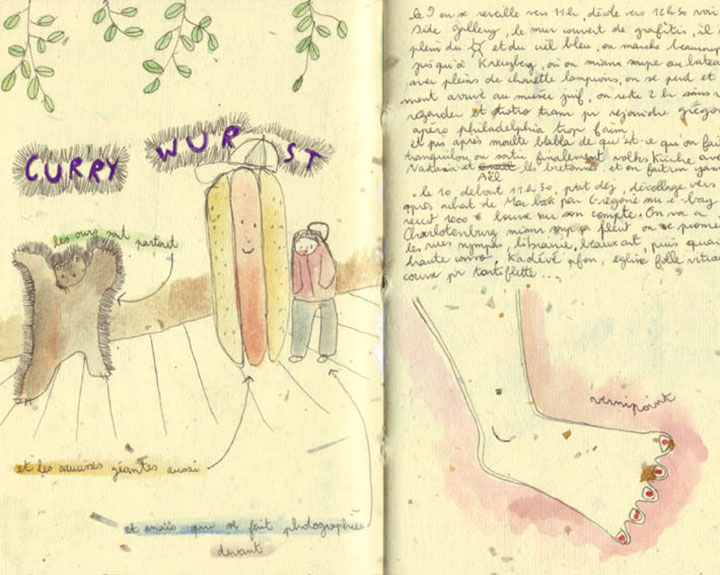 CURRY WURST
les ours sont partout
et les saucisses géantes aussi
et anaïs qui se fait photographier
devant
le 9 on se reveille vers 11h, décole vers 12h30 voir
Side Gallery, le mur couvert de grafitis, il
plein du et du ciel bleu, on marche beaucoup
jusqu'à Kreuzberg, où on miam soupe au bateau
avec pleins de chouette lampions, on se perd et
ment arrive au musée juif, on reste 2h sans
regarder et tram pr rejoindre grégoi
apero philadelphia trop faim.
et puis après moulte blabla de qu'est-ce qu'on fait
tranquilou on sortit finalement volks Küche avec
et les bretonnes, et on fait
Aël
. le 10 debout 11h30, ptit déj, décollage vers
après achat de Mac book par Grégorie sur e-bay
1000 € sur son compte. On va a
Charlotenburg miam soup pleut on se promene
les rues nymph, librairie, beaux art, puis
église folle
course pr tartiflette ...
vernipoint